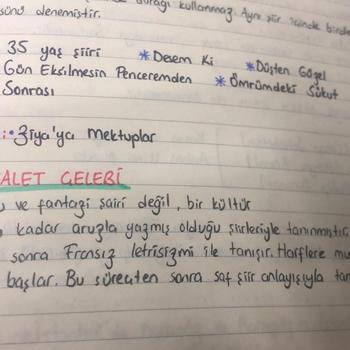 sünü denemiştir. durağı kullanmaz. Aynı şiir içinde
35 yaş şiiri *Desem Ki *Düşten Güzel
Gün Eksilmesin Penceremden *Ömrümdeki Sükut
Sonrası
• Ziya'ya Mektuplar
ALET ÇELEBİ
ve fantazi şairi değil, bir kültür
kadar aruzla yazmış olduğu şiirleriyle tanınmıştır.
sonra Fransız letrisizmi ile tanışır. Harflere
başlar. Bu süreçten sonra saf şiir anlayışıyla